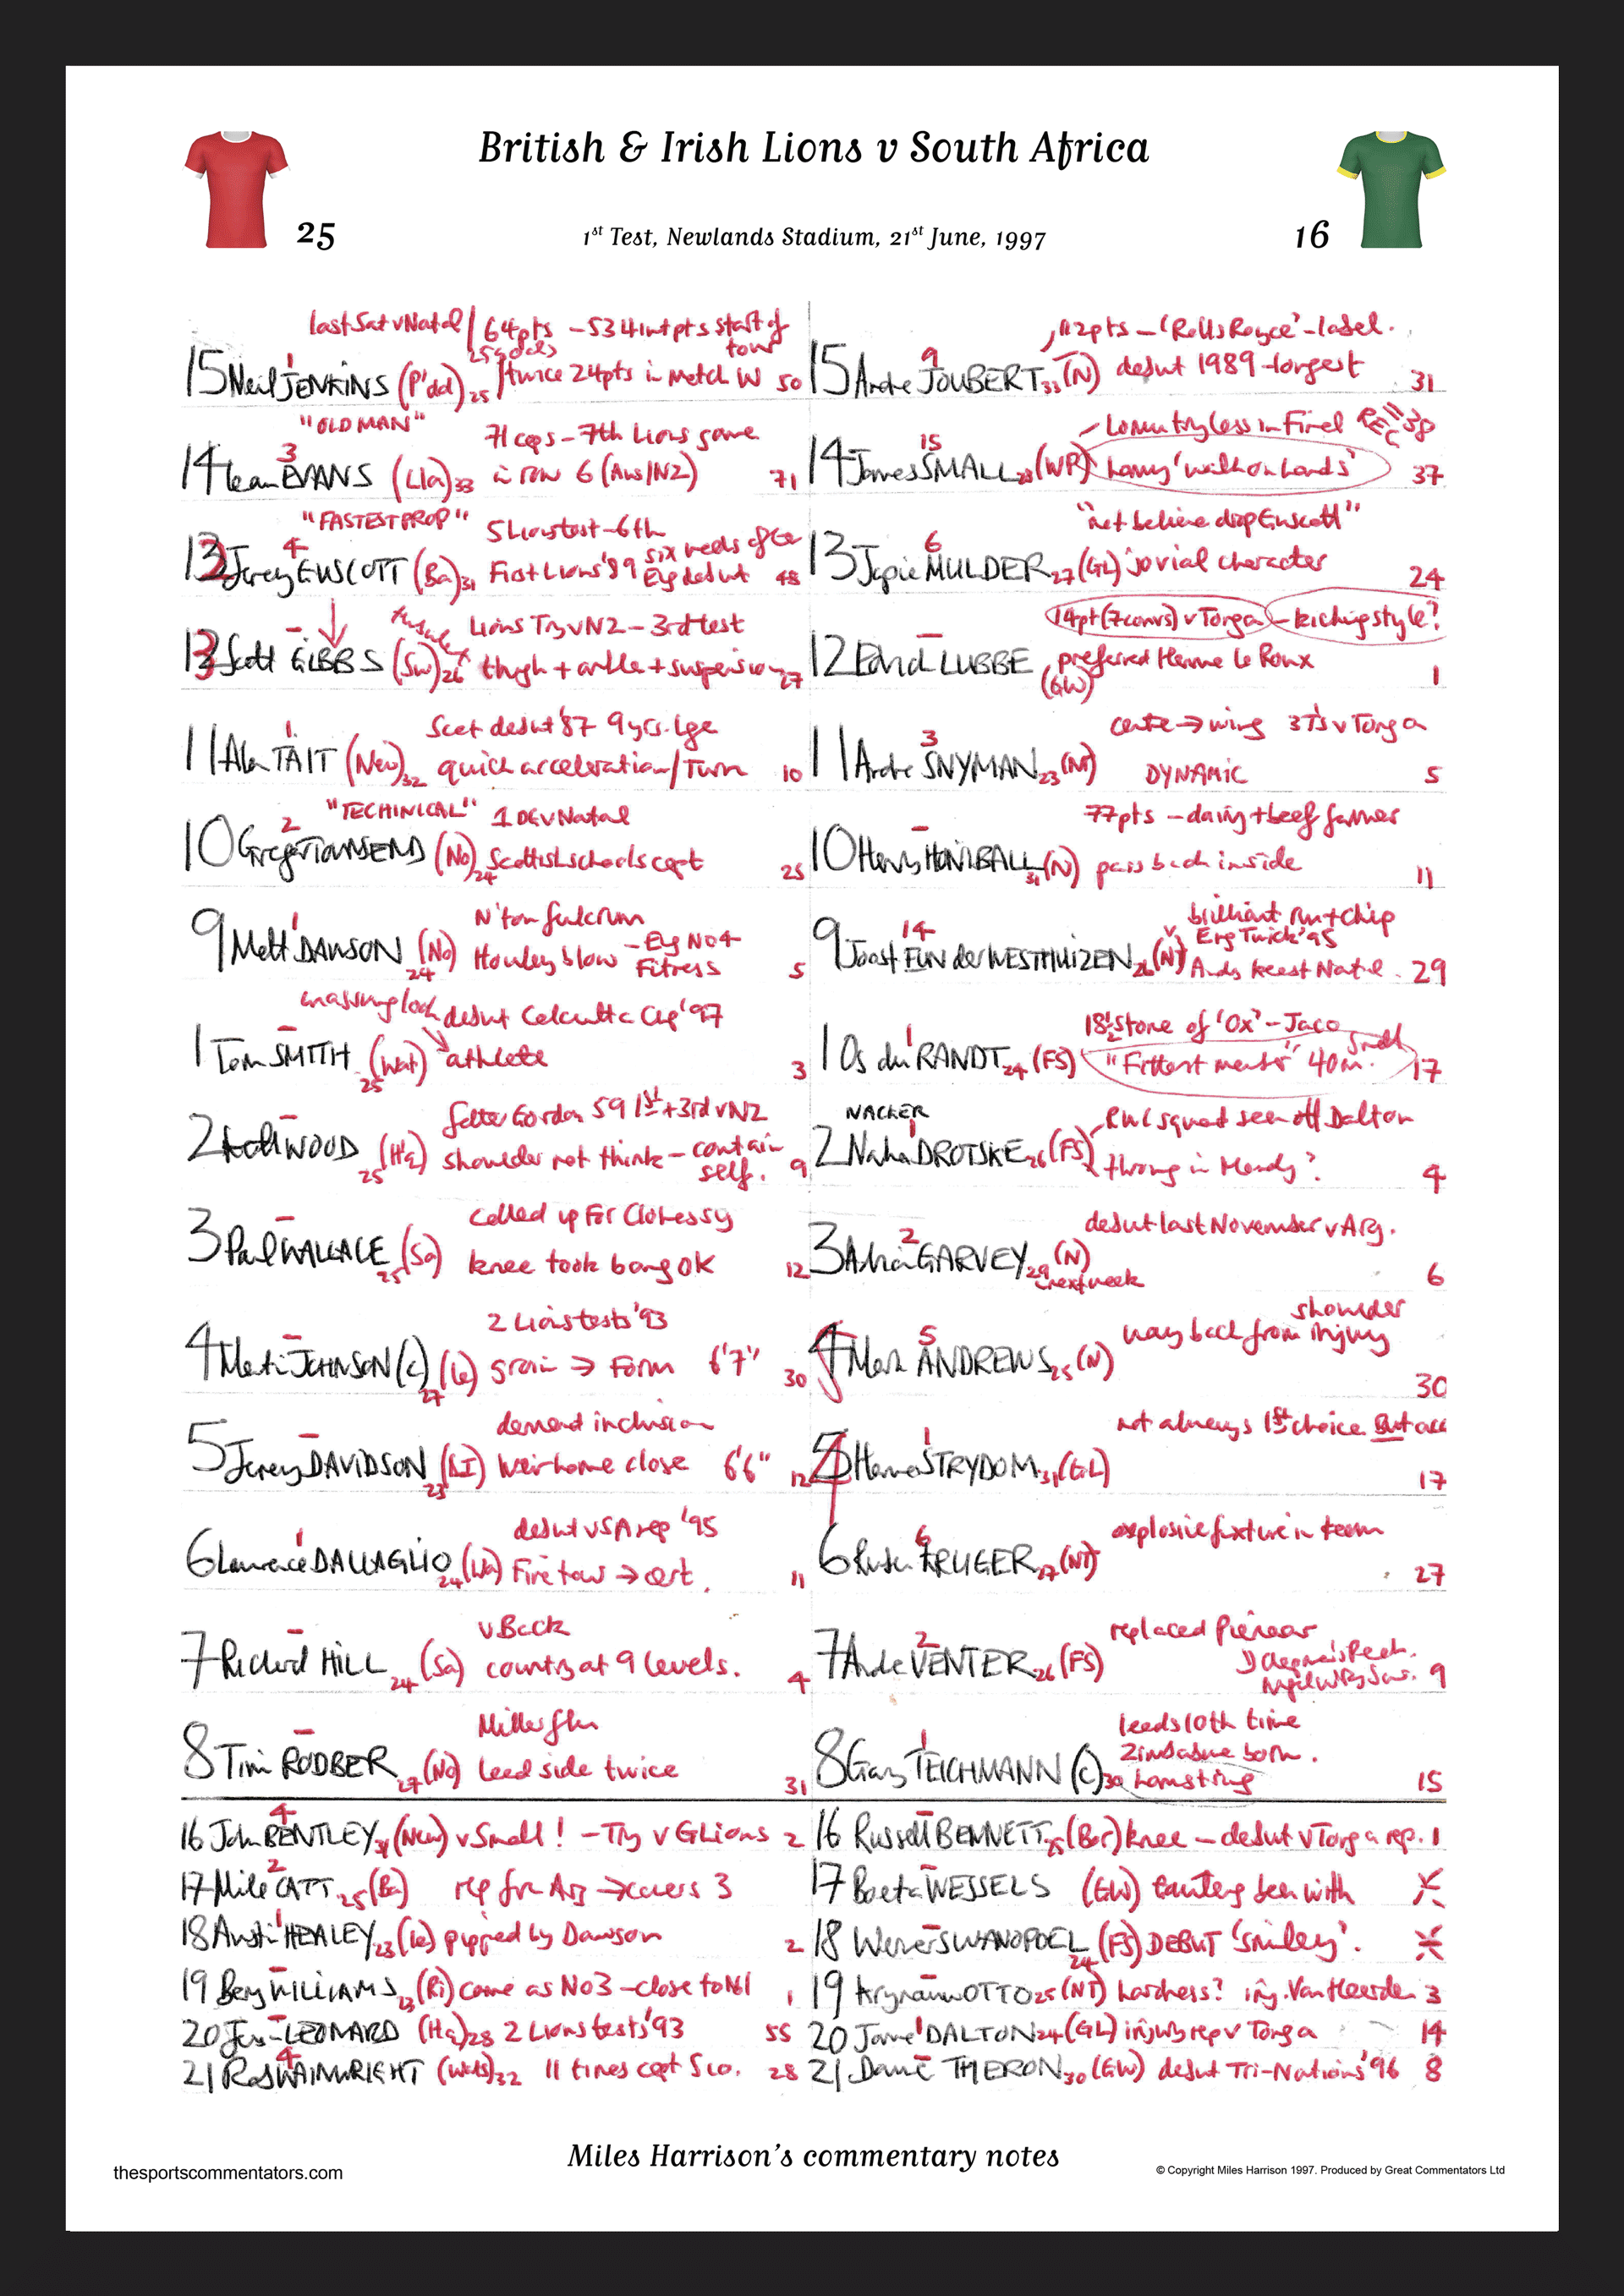 British & Irish Lions v South Africa
25
1st Test, Newlands Stadium, 21st June, 1997
16
last Sat v Natal / 64pts - 534 int pts start of tour
15 Neil JENKINS (P'dd) 25 twice 24pts in match W 50
1
"OLD MAN" 71 caps - 7th Lions game
3
14 Ieuan EVANS (Lla) 33 in row 6 (Aus/NZ) 71
"FASTEST PROP" 5 Lions test - 6th
4
Jeremy GUSCOTT (Ba) 31 First Lions '89 six weeks after Eng debut 48
Lions Try v NZ - 3rd test
Scott GIBBS (Sw) 26 thigh + ankle + suspension 27
Scot debut '87 9 yrs. lge
1
11 Alan TAIT (New) 32 quick acceleration / Turn 10
"TECHINICAL" 1 DG v Natal
2
10 Gregor TOWNSEND (No) 24 Scottish schools capt 25
N'ton fulcrum
1
9 Matt DAWSON (No) 24 Howley blow - Eng No 4 Fitness 5
debut Calcutta Cup '97
1 Tom SMITH (Wat) 25 athlete 3
Gordon 59 1st + 3rd v NZ
2 Keith WOOD (Ha) 25 shoulder not think - contain self. 9
called up For Clohessy
3 Paul WALLACE (Sa) 25 knee took bang OK 12
2 Lions tests '93
4 Martin JOHNSON (c) (Le) 27 groin → Form 6'7" 30
demand inclusion
5 Jeremy DAVIDSON (LI) 23 Weir home close 6'6" 12
debut v SA rep '95
1
6 Lawrence DALLAGLIO 24 (Wa) Fire tour → cert. 11
v Back
7 Richard HILL 24 (Sa) country at 9 levels. 4
Miller flu
8 Tim RODBER 27 (No) Lead side twice 31
4
16 John BENTLEY 31 (New) v Small! - Try v G Lions 2
2
17 Mike CATT 25 (Ba) rep from Arg → covers 3
1
18 Austin HEALEY 23 (Le) pipped by Dawson 2
19 Barry WILLIAMS 23 (Ri) came as No 3 - close to No 1 1
20 Jason LEONARD (Ha) 28 2 Lions tests '93 55
4
21 Rob WAINWRIGHT (Wats) 32 11 times capt Sco. 28
112pts - 'Rolls Royce' - label.
9
15 Andre JOUBERT 33 (N) debut 1989 - longest 31
Lomu tryless in Final REC 38
15
14 James SMALL 28 (WP) 37
"not believe drop Guscott"
6
13 Japie MULDER 27 (GL) jovial character 24
14pt (7 convs) v Tonga - kicking style?
12 Edrich LUBBE (GW) preferred Hennie Le Roux 1
centre → wing 3 T's v Tonga
3
11 Andre SNYMAN 23 (N) DYNAMIC 5
77pts - dairy + beef farmer
10 Henry HONIBALL 31 (N) pass back inside 11
brilliant run + chip
14
9 Joost VAN der WESTHUIZEN 26 (NT) Eng Twick '95 29
18½ stone of 'Ox' - Jaco
1
1 Os du RANDT 24 (FS) "Fittest 40m. Small 17
NACKER RWC squad see off Dalton
1
2 Naka DROTSKE 26 (FS) throwing in 4
debut last November v Arg.
2
3 Adrian GARVEY 29 (N) next week 6
way back from shoulder injury
5
4 Mark ANDREWS 25 (N) 30
not always 1st choice But
1
Hannes STRYDOM 31 (GL) 17
explosive fixture in team
6
6 Ruben KRUGER 27 (NT) 27
replaced Pienaar
2
7 Andre VENTER 26 (FS) 9
leads 10th time
Zimbabwe born.
1
8 Gary TEICHMANN (c) 30 hamstring 15
16 Russell BENNETT 25 (Bor) knee - debut v Tonga rep. 1
17 Boeta WESSELS (GW) been with
18 Werner SWANEPOEL 24 (FS) DEBUT 'Smiley'.
19 Krynauw OTTO 25 (NT) hardness? inj. Van Heerden 3
1
20 James DALTON 24 (GL) injury rep v Tonga 14
21 Dawie THERON 30 (GW) debut Tri-Nations '96 8
Miles Harrison's commentary notes
thesportscommentators.com
© Copyright Miles Harrison 1997. Produced by Great Commentators Ltd